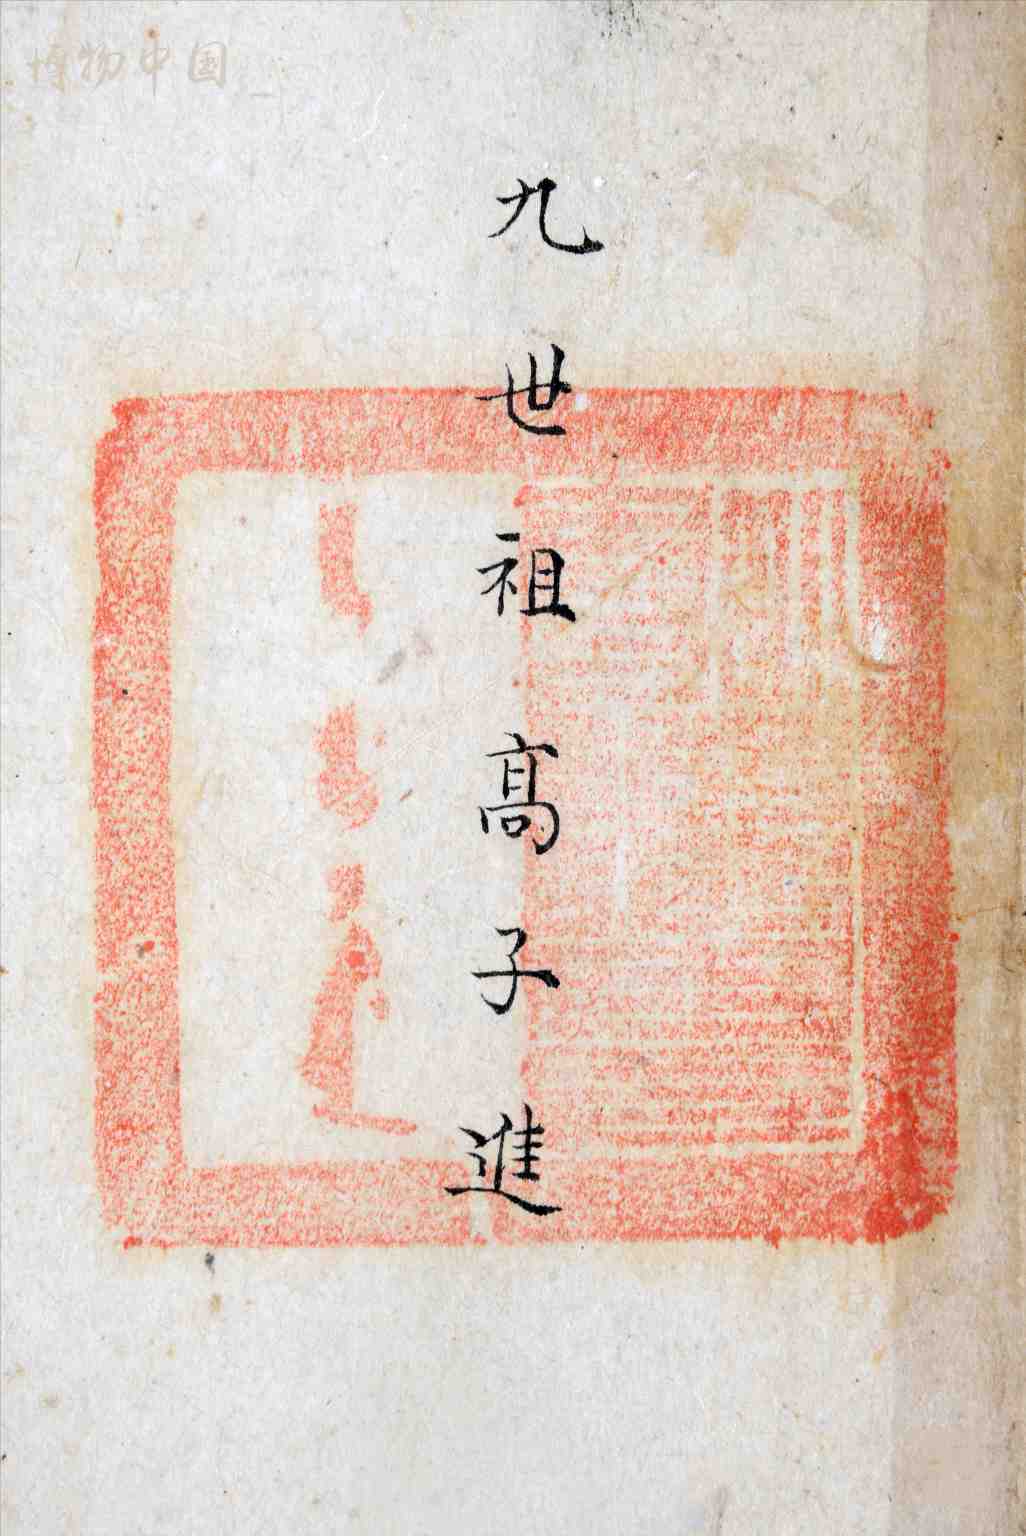 博物中国
九世祖高子進